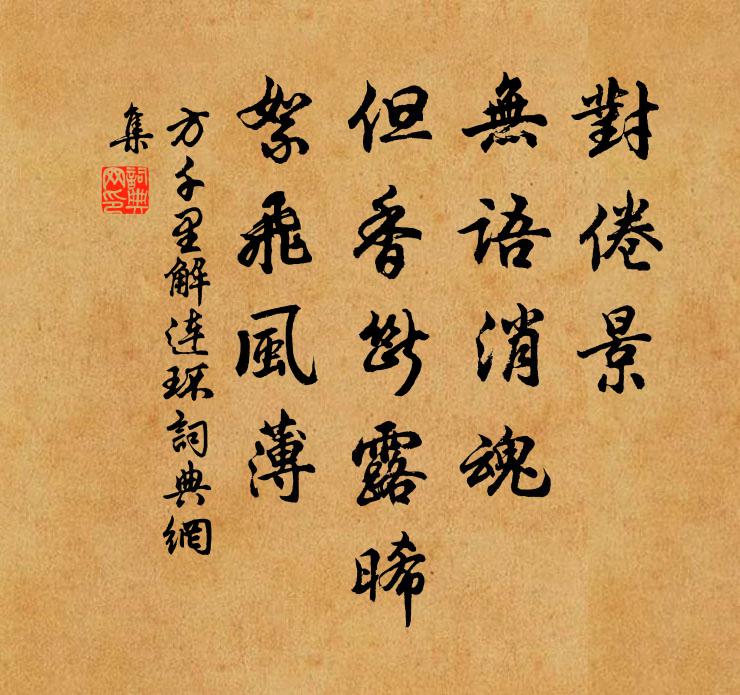 對倦景
無語消魂
但香斷露晞
絮飛風薄
方千里解连环詞典網
集
詞典
网印